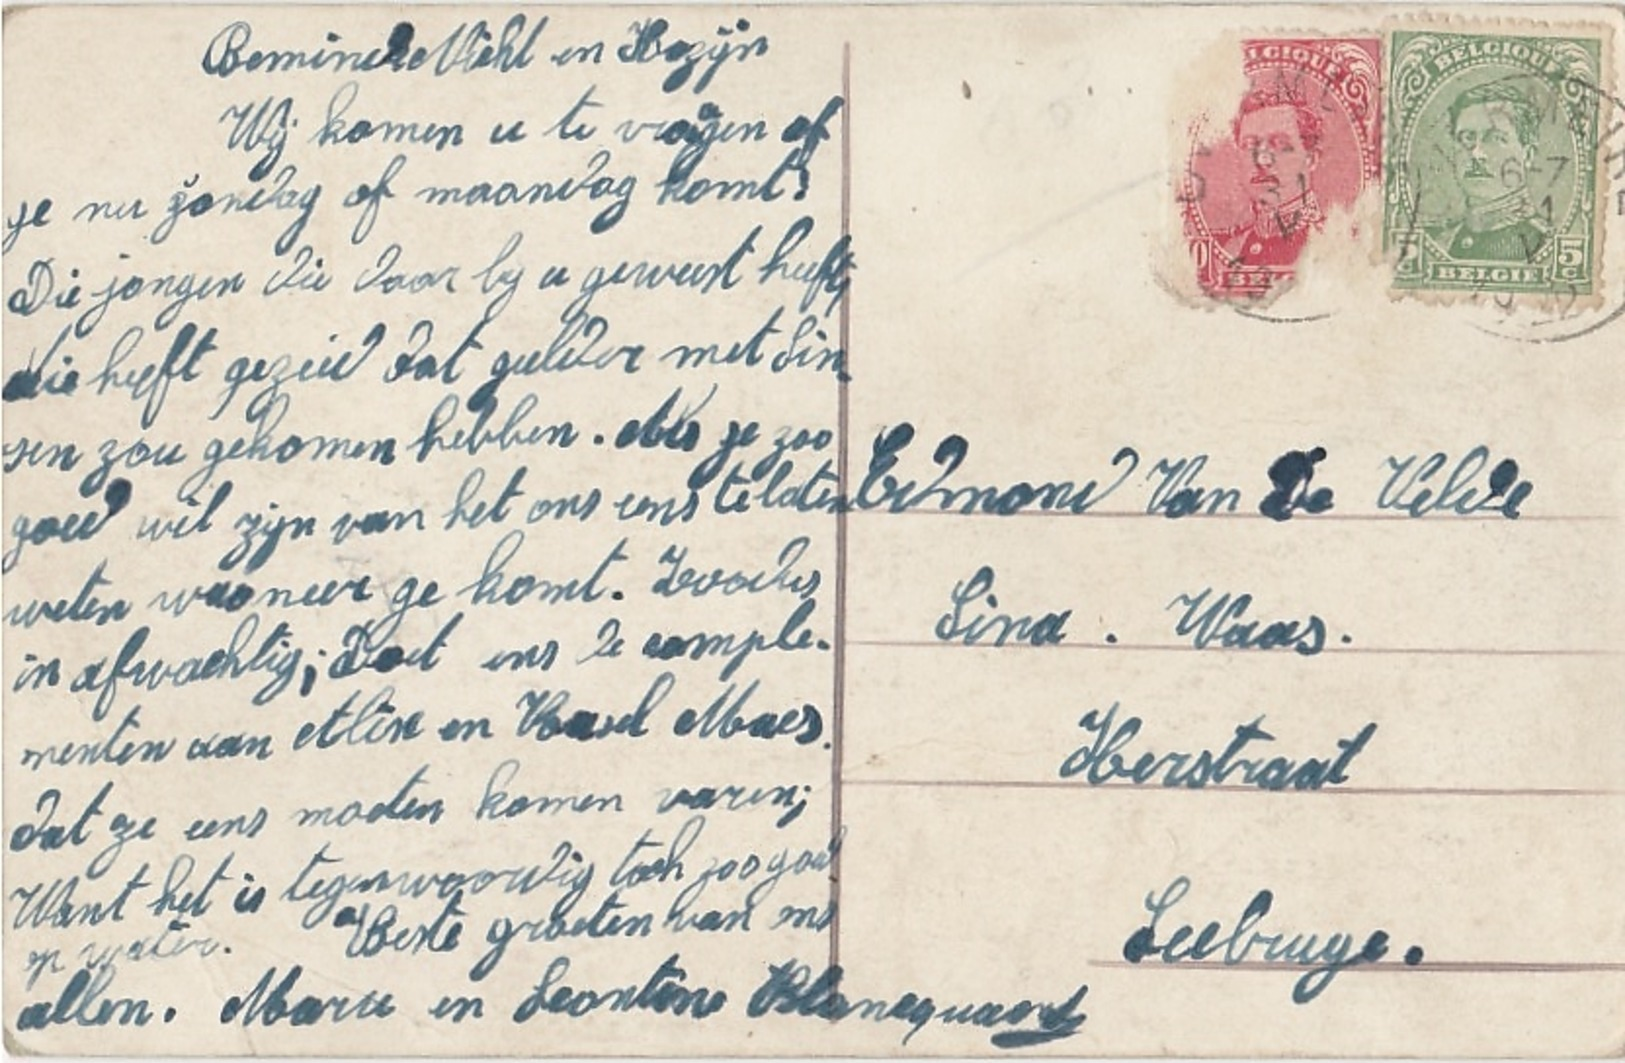 Beminde Nicht en Kozijn
Wij komen u te vragen of
je nu zondag of maandag komt?
Die jongen die daar by u geweest heeft,
die heeft gezeid dat gulder met Sin-
sen zou gekomen hebben. Als je zoo
goed wil zijn van het ons eens te laten
weten waaneer ge komt. Zoodus
in afwachtig; Doet ons de comple-
menten aan Alise en Karel Maes.
dat ze eens moeten komen varen;
Want het is tegenwoordig toch zoo goed
op water. Beste groeten van ons
allen. Marie en Leontine Blancquaert
BELGIQUE
BELGIE
5c
BELGIQUE
BELGIE
6-7
Edmond Van De Velde
Sina. Waas.
Kerstraat
Seebruge.